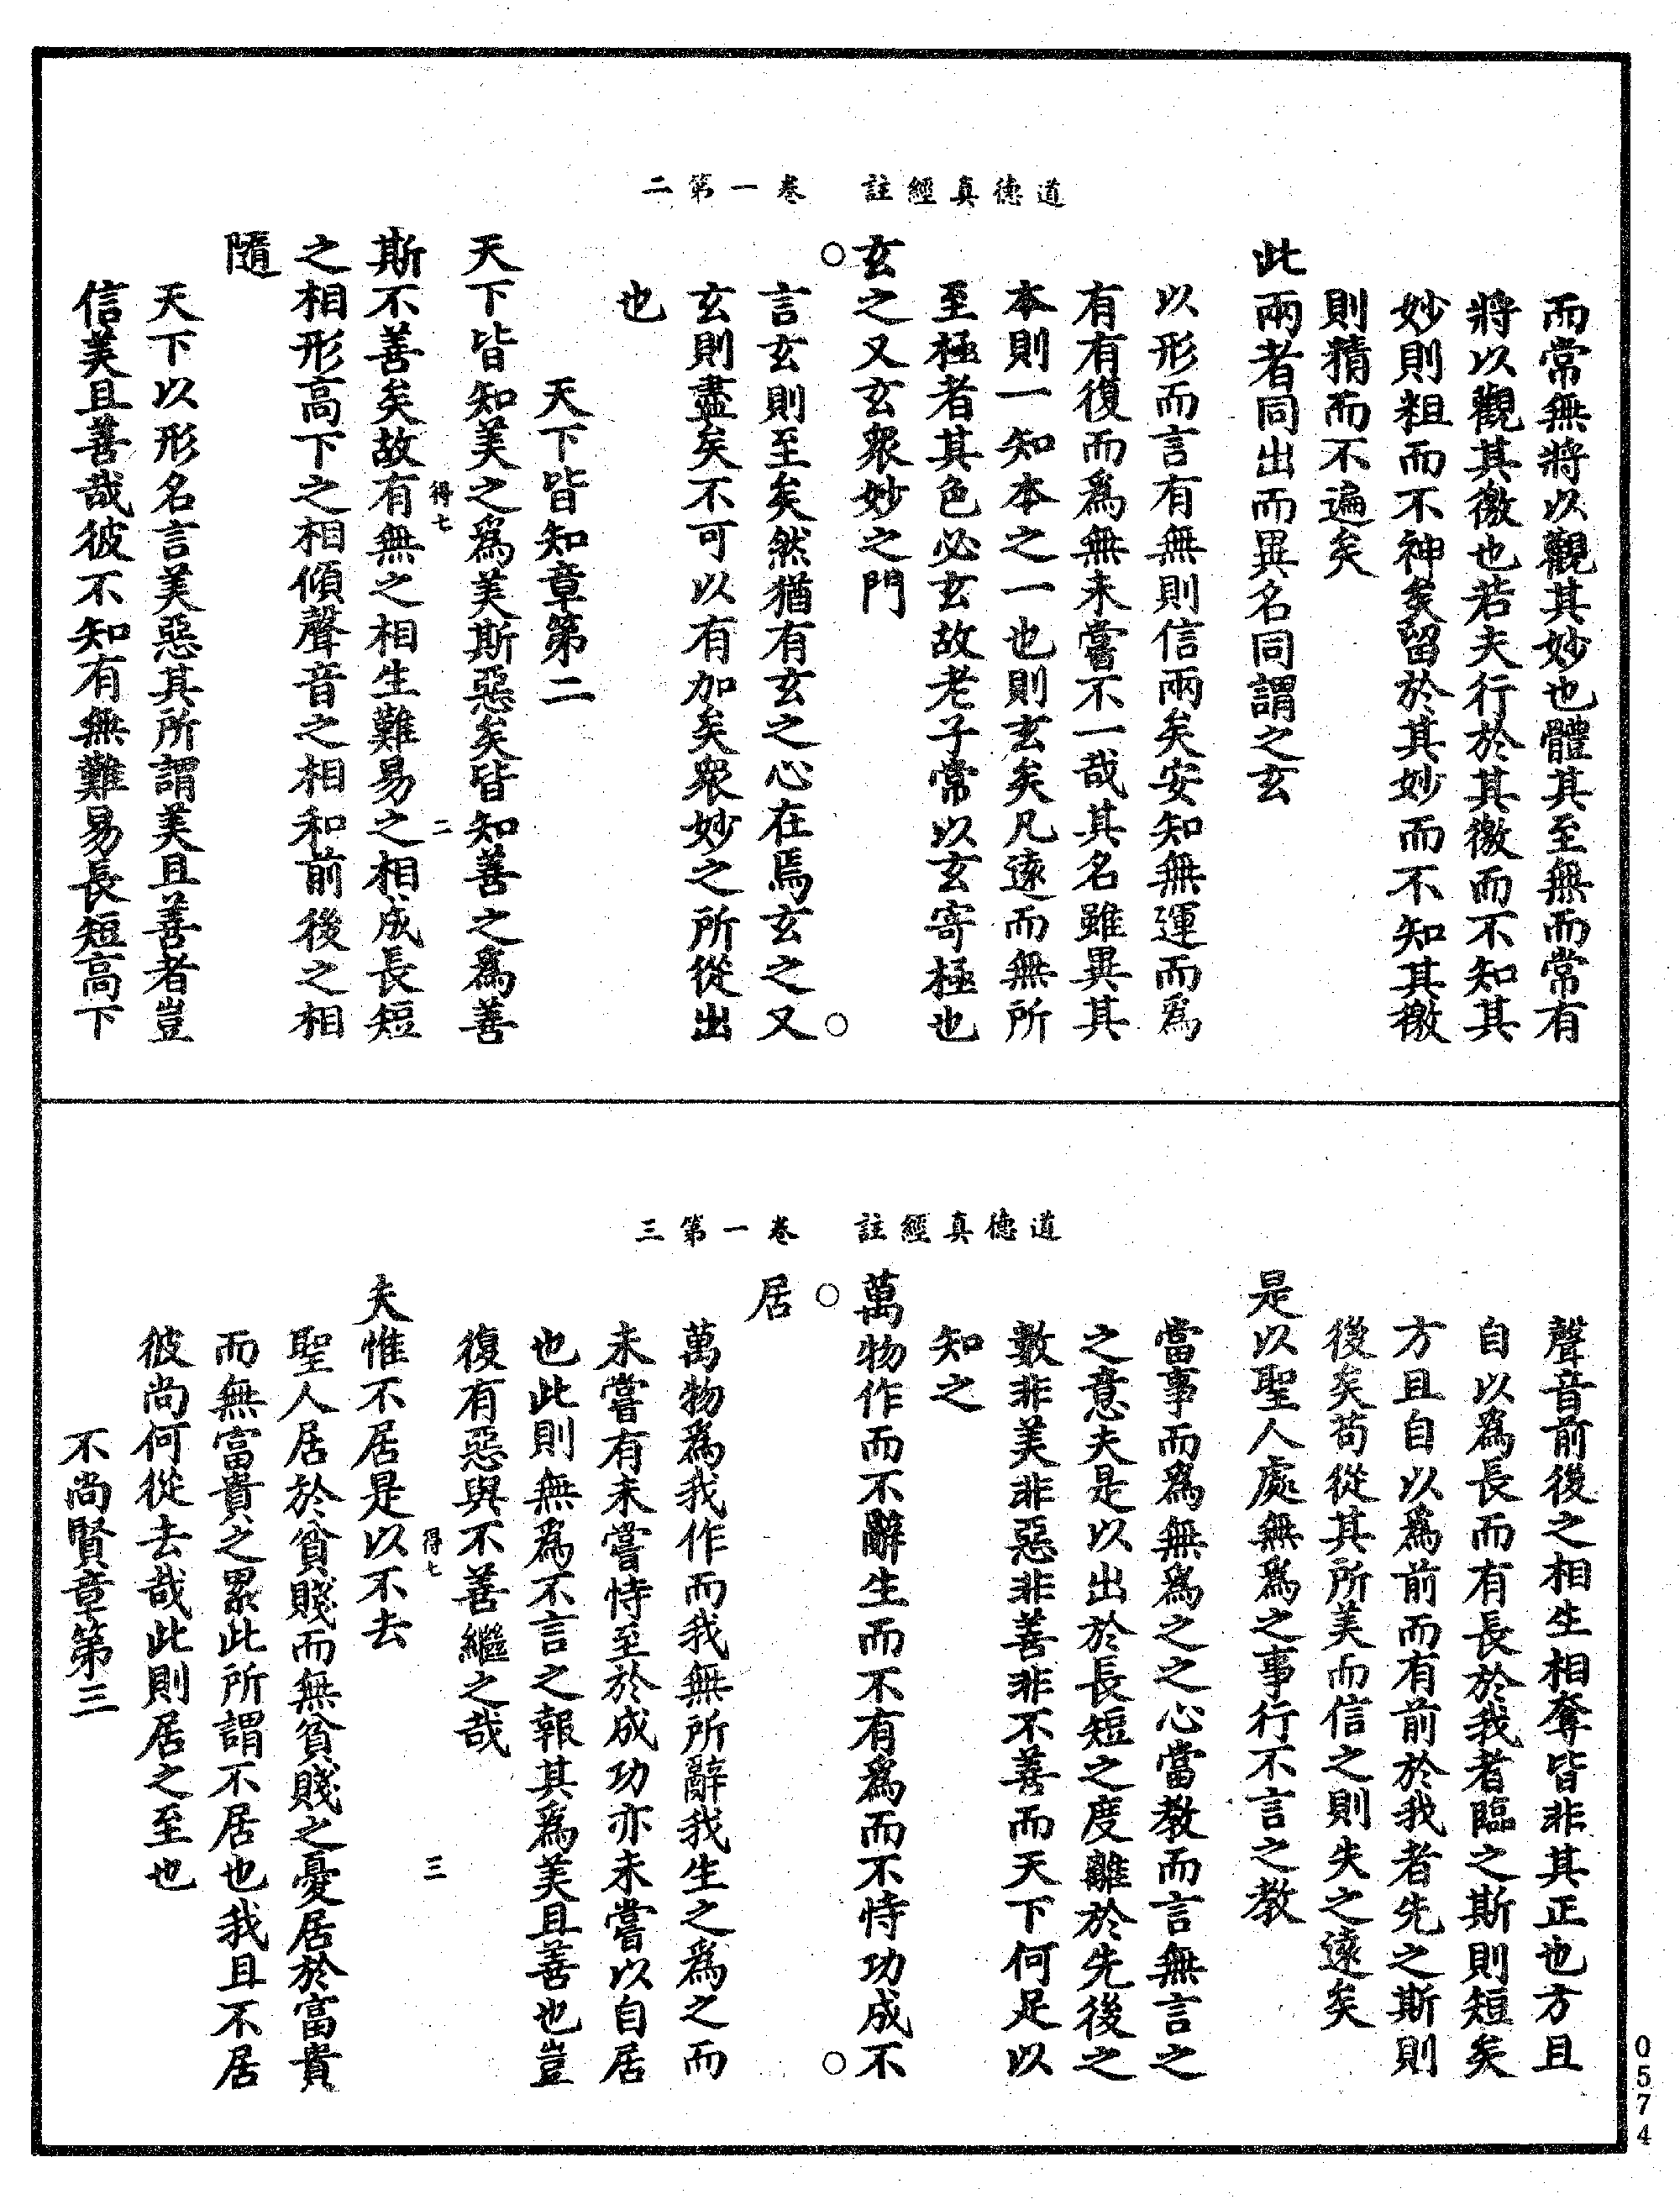 道德真經註　卷一第二
而常無將以觀其妙也體其至無而常有
將以觀其徼也若夫行於其徼而不知其
妙則粗而不神矣留於其妙而不知其徼
則精而不遍矣
此兩者同出而異名同謂之玄
以形而言有無則信兩矣安知無運而爲
有有復而爲無未嘗不一哉其名雖異其
本則一知本之一也則玄矣凡遠而無所
至極者其色必玄故老子常以玄寄極也
玄之又玄衆妙之門
○
言玄則至矣然猶有玄之心在焉玄之又
○
玄則盡矣不可以有加矣衆妙之所從出
也
天下皆知章第二
天下皆知美之爲美斯惡矣皆知善之爲善
得七　二
斯不善矣故有無之相生難易之相成長短
之相形高下之相傾聲音之相和前後之相
隨
天下以形名言美惡其所謂美且善者豈
信美且善哉彼不知有無難易長短高下
道德真經註　卷一第三
聲音前後之相生相奪皆非其正也方且
自以爲長而有長於我者臨之斯則短矣
方且自以爲前而有前於我者先之斯則
後矣苟從其所美而信之則失之遠矣
是以聖人處無爲之事行不言之教
當事而爲無爲之之心當教而言無言之
之意夫是以出於長短之度離於先後之
數非美非惡非善非不善而天下何足以
知之
萬物作而不辭生而不有爲而不恃功成不
○
○
居
萬物爲我作而我無所辭我生之爲之而
未嘗有未嘗恃至於成功亦未嘗以自居
也此則無爲不言之報其爲美且善也豈
復有惡與不善繼之哉
得七　三
夫惟不居是以不去
聖人居於貧賤而無貧賤之憂居於富貴
而無富貴之累此所謂不居也我且不居
彼尚何從去哉此則居之至也
不尚賢章第三
0574